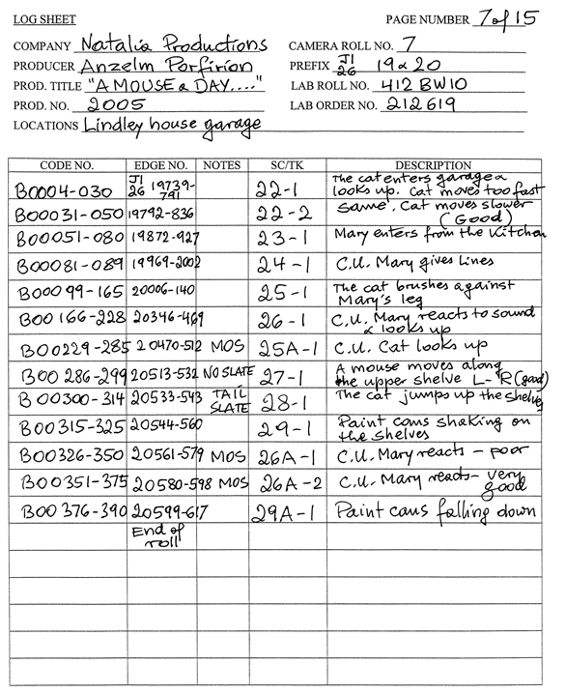 LOG SHEET
PAGE NUMBER 7 of 15
COMPANY Natalia Productions
CAMERA ROLL NO. 7
PRODUCER Anzelm Porfirion
PREFIX JI 26 19 & 20
PROD. TITLE "A MOUSE & DAY...."
LAB ROLL NO. 412 BW10
PROD. NO. 2005
LAB ORDER NO. 212619
LOCATIONS Lindley house garage
CODE NO. EDGE NO. NOTES SC/TK DESCRIPTION
B0004-030 JI 26 19739-791 22-1 The cat enters garage & looks up. Cat moves too fast
B00031-050 19792-836 22-2 Same. Cat moves slower (Good)
B00051-080 19872-927 23-1 Mary enters from the Kitchen
B00081-089 19969-2002 24-1 C.U. Mary gives Lines
B00099-165 20006-140 25-1 The cat brushes against Mary's leg
B00166-228 20346-469 26-1 C.U. Mary reacts to sound & looks up
B00229-285 20470-512 MOS 25A-1 C.U. Cat looks up
B00286-299 20513-532 NO SLATE 27-1 A mouse moves along the upper shelve L-R (good)
B00300-314 20533-543 TAIL SLATE 28-1 The cat jumps up the shelves
B00315-325 20544-560 29-1 Paint cans shaking on the shelves
B00326-350 20561-579 MOS 26A-1 C.U. Mary reacts - poor
B00351-375 20580-598 MOS 26A-2 C.U. Mary reacts - very good
B00376-390 20599-617 29A-1 Paint cans falling down
End of roll